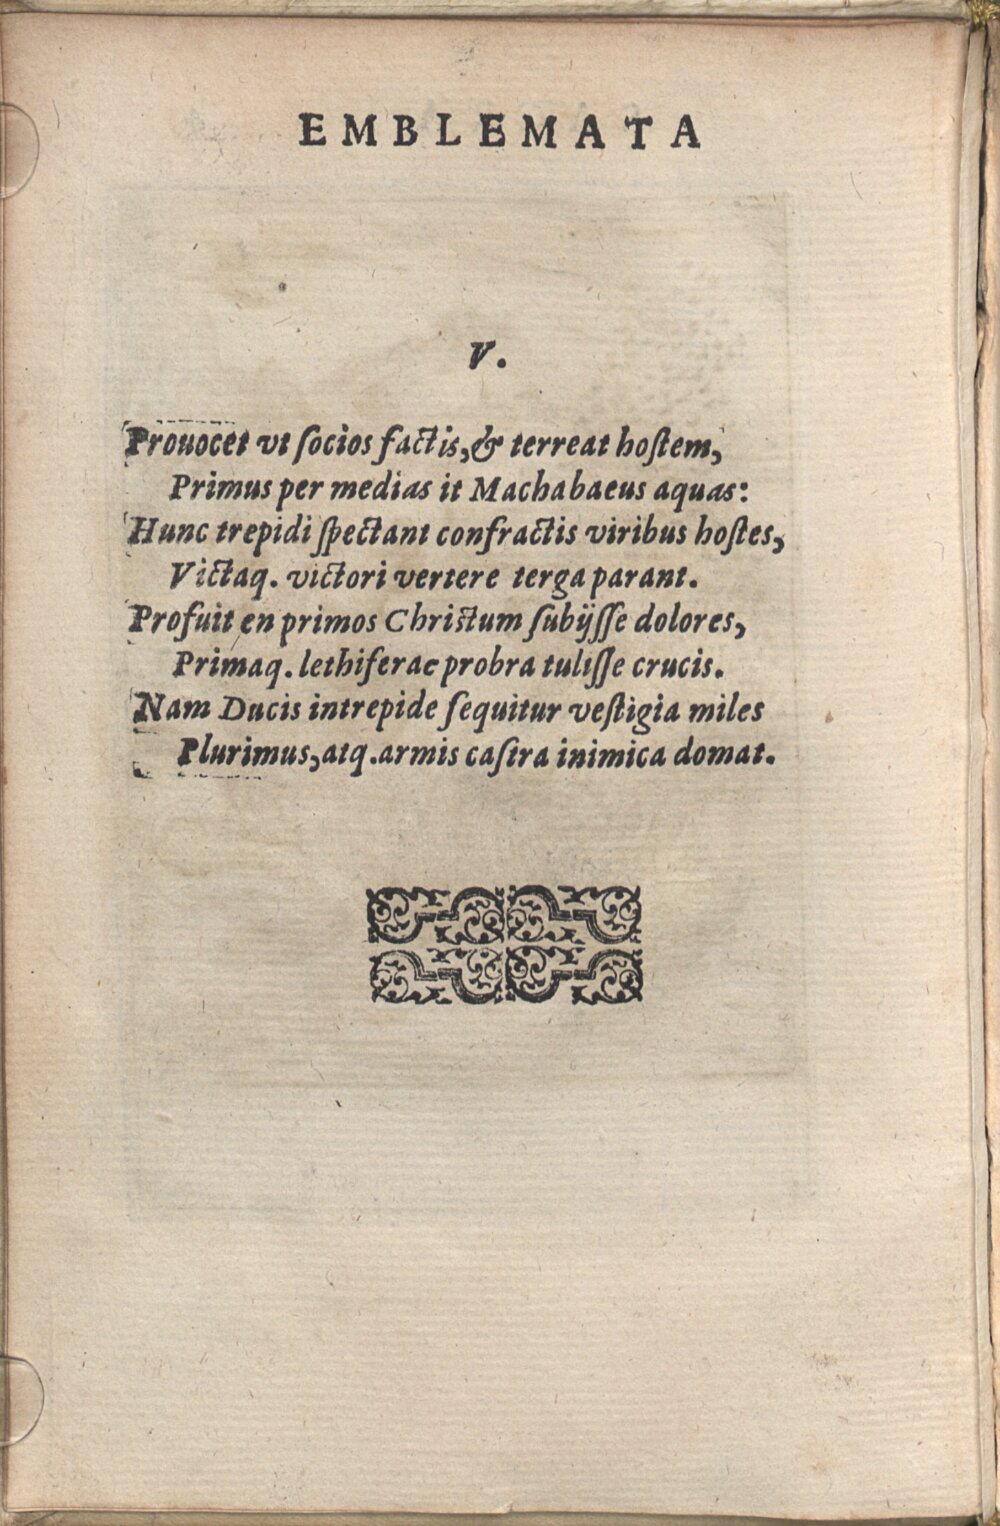 EMBLEMATA
V.
Prouocet vt ſocios factis, & terreat hoſtem,
Primus per medias it Machabaeus aquas:
Hunc trepidi ſpectant confractis viribus hoſtes,
Victaq. victori vertere terga parant.
Profuit en primos Chriſtum ſubijſſe dolores,
Primaq. lethiferae probra tuliſſe crucis.
Nam Ducis intrepide ſequitur veſtigia miles
Plurimus, atq. armis caſtra inimica domat.